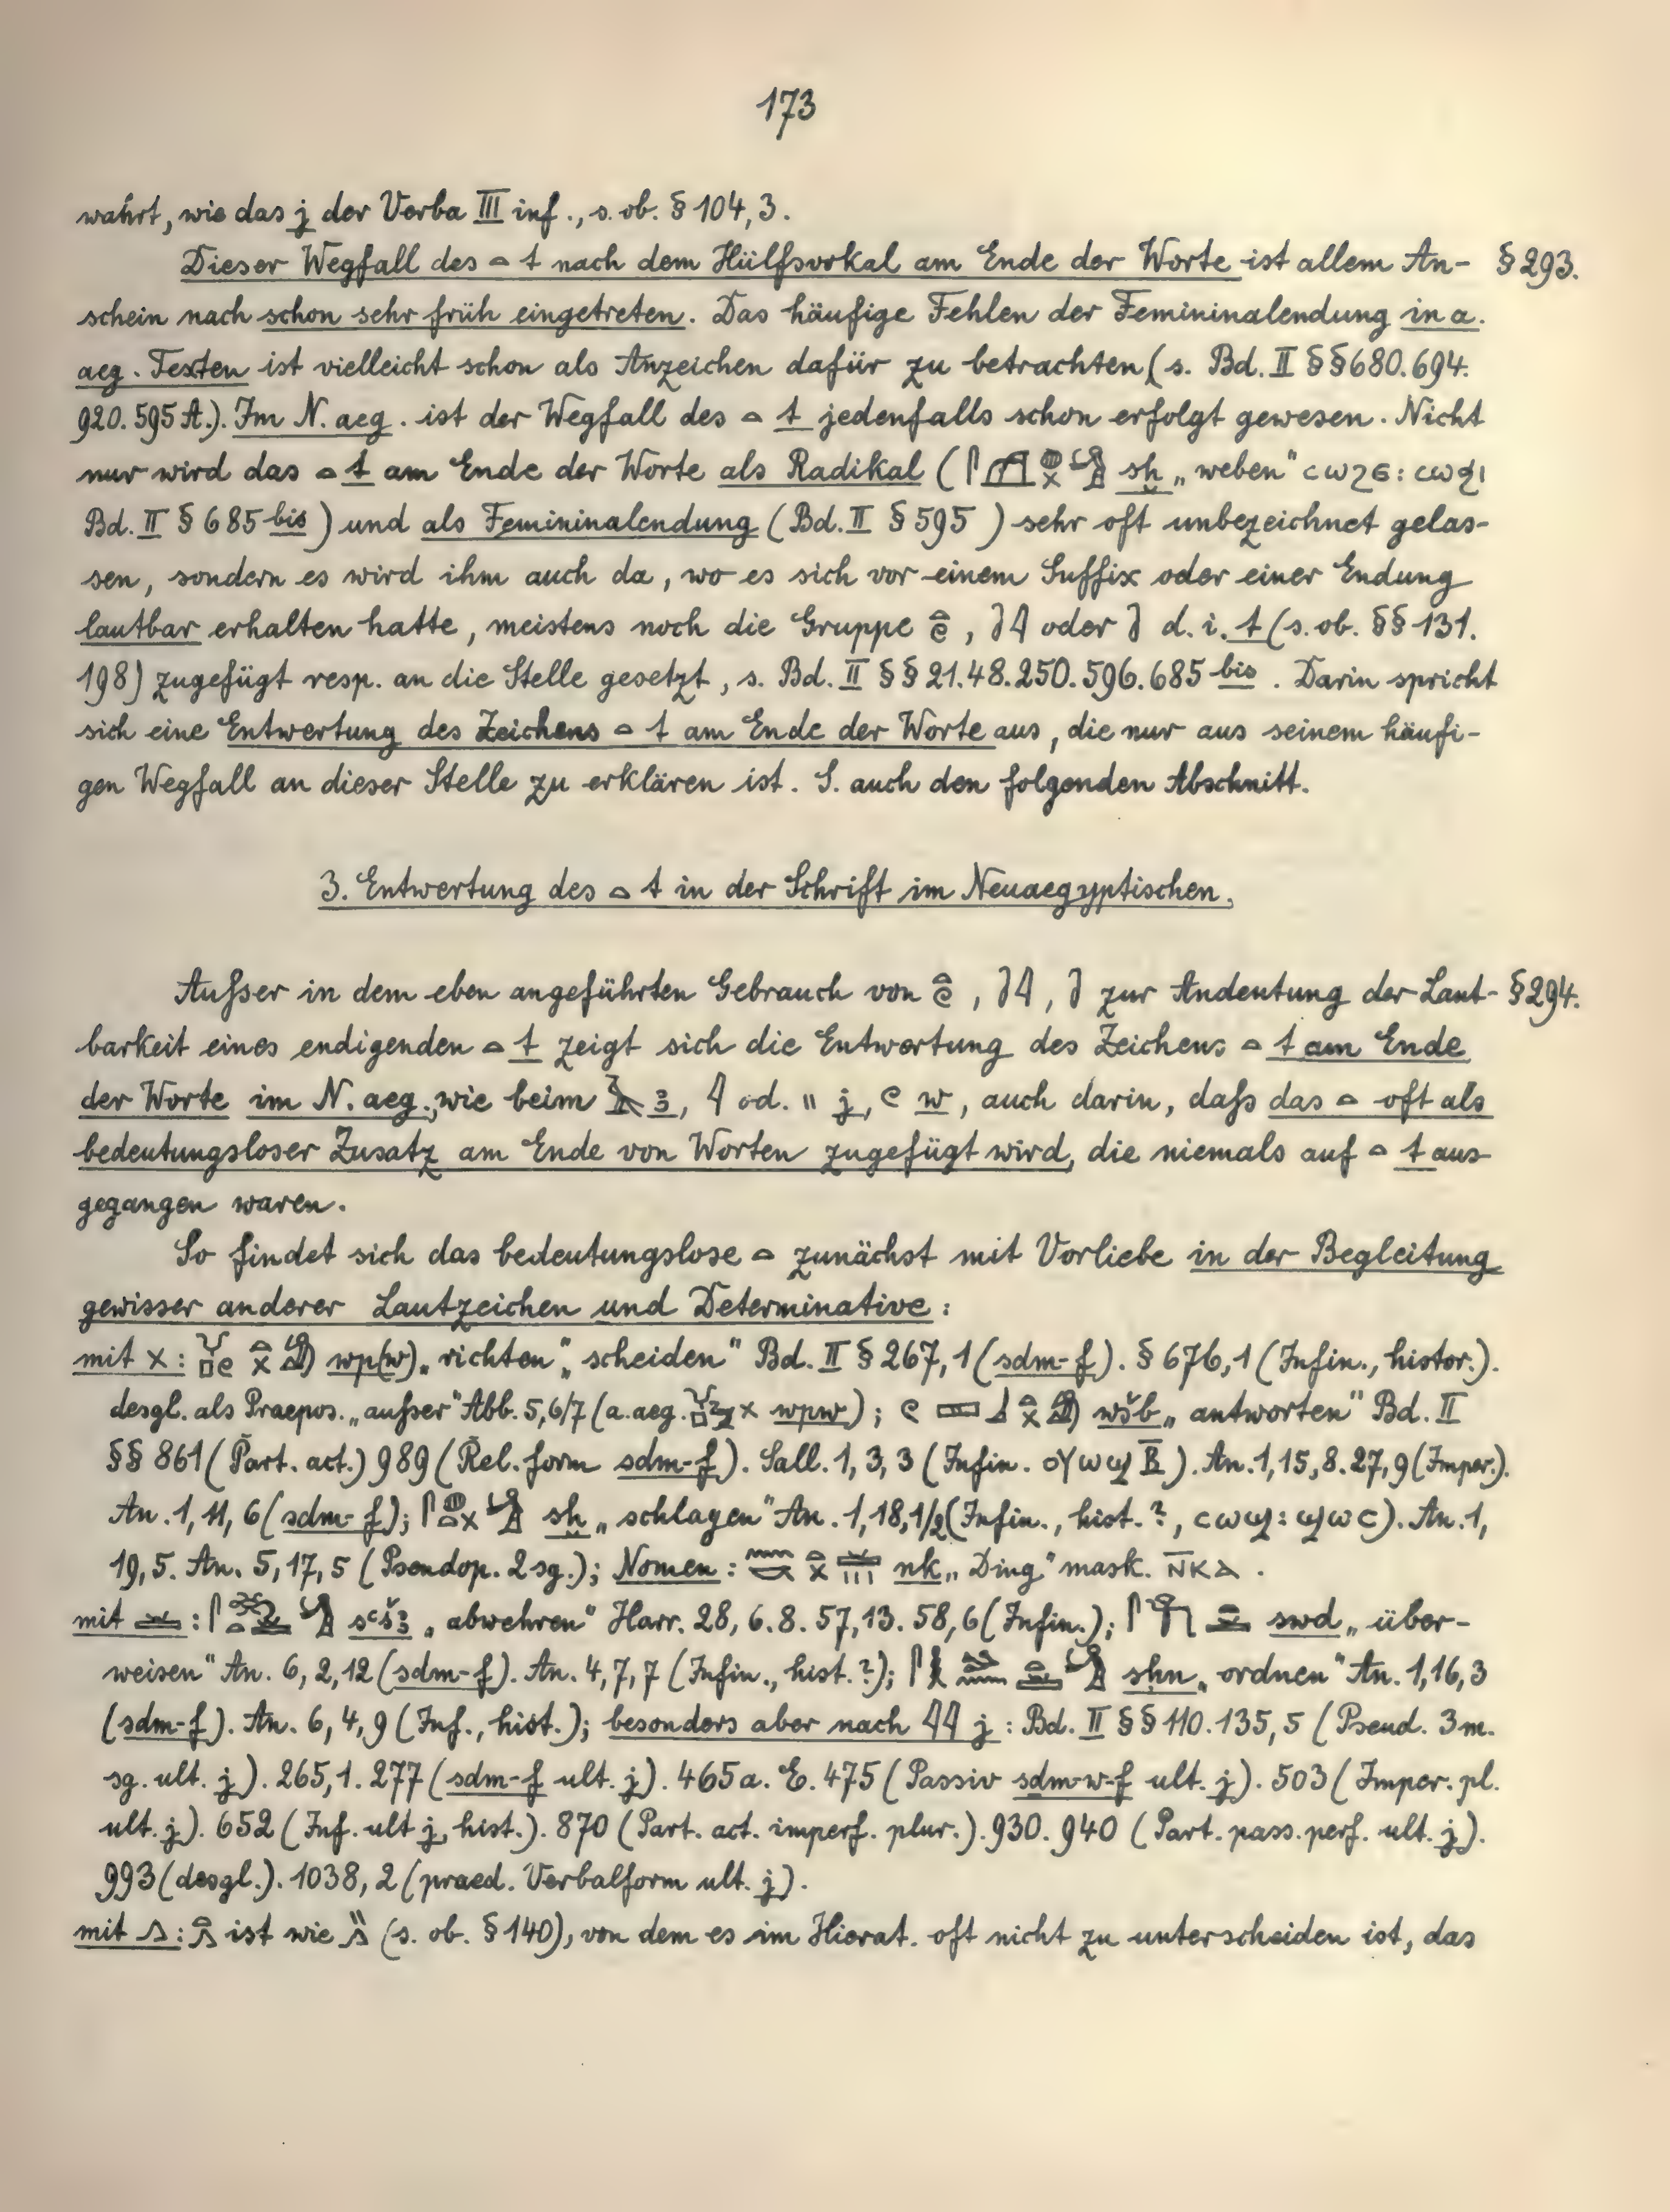 173
wahrt, wie das j der Verba III inf., s. ob. § 104, 3.
Dieser Wegfall des 𓏏 t nach dem Hülfsvokal am Ende der Worte ist allem An- § 293.
schein nach schon sehr früh eingetreten. Das häufige Fehlen der Femininalendung in a.
aeg. Texten ist vielleicht schon als Anzeichen dafür zu betrachten (s. Bd. II §§ 680. 694.
920. 595 A.). Im N. aeg. ist der Wegfall des 𓏏 t jedenfalls schon erfolgt gewesen. Nicht
nur wird das 𓏏 t am Ende der Worte als Radikal ( sḫ „weben" ⲥⲱϩⲉ: ⲥⲱϧⲓ
Bd. II § 685 bis) und als Femininalendung (Bd. II § 595 ) sehr oft unbezeichnet gelas-
sen, sondern es wird ihm auch da, wo es sich vor einem Suffix oder einer Endung
lautbar erhalten hatte, meistens noch die Gruppe 𓏏𓏲, oder d. i. t (s. ob. §§ 131.
198) zugefügt resp. an die Stelle gesetzt, s. Bd. II §§ 21. 48. 250. 596. 685 bis. Darin spricht
sich eine Entwertung des Zeichens 𓏏 t am Ende der Worte aus, die nur aus seinem häufi-
gen Wegfall an dieser Stelle zu erklären ist. S. auch den folgenden Abschnitt.
3. Entwertung des 𓏏 t in der Schrift im Neuaegyptischen.
Ausser in dem eben angeführten Gebrauch von 𓏏𓏲, , zur Andeutung der Laut- § 294.
barkeit eines endigenden 𓏏 t zeigt sich die Entwertung des Zeichens 𓏏 t am Ende
der Worte im N. aeg., wie beim 𓄿 ꜣ, 𓇋 od. " j, 𓏲 w, auch darin, dass das 𓏏 oft als
bedeutungsloser Zusatz am Ende von Worten zugefügt wird, die niemals auf 𓏏 t aus
gegangen waren.
So findet sich das bedeutungslose 𓏏 zunächst mit Vorliebe in der Begleitung
gewisser anderer Lautzeichen und Determinative:
mit 𓏴: wp(w) „richten", „scheiden" Bd. II § 267, 1 (sdm-f). § 676, 1 (Infin., histor.).
desgl. als Praepos. „ausser" Abb. 5, 6/7 (a. aeg. wpw); wšb „antworten" Bd. II
§§ 861 (Part. act.) 989 (Rel. form sdm-f). Sall. 1, 3, 3 (Infin. ⲟⲩⲱϣⲃ̅). An. 1, 15, 8. 27, 9 (Imper.).
An. 1, 11, 6 (sdm-f); sḫ „schlagen" An. 1, 18, 1/2 (Infin., hist.?, ⲥⲱϣ: ϣⲱⲥ). An. 1,
19, 5. An. 5, 17, 5 (Pseudop. 2 sg.); Nomen: nk „Ding" mask. ⲛ̅ⲕⲁ.
mit 𓏛: sꜥšꜣ „abwehren" Harr. 28, 6. 8. 57, 13. 58, 6 (Infin.); swd „über-
weisen" An. 6, 2, 12 (sdm-f). An. 4, 7, 7 (Infin., hist.?); sḥn „ordnen" An. 1, 16, 3
(sdm-f). An. 6, 4, 9 (Inf., hist.); besonders aber nach 𓇋𓇋 j: Bd. II §§ 110. 135, 5 (Pseud. 3 m.
sg. ult. j). 265, 1. 277 (sdm-f ult. j). 465 a. E. 475 (Passiv sdm-w-f ult. j). 503 (Imper. pl.
ult. j). 652 (Inf. ult j, hist.). 870 (Part. act. imperf. plur.). 930. 940 (Part. pass. perf. ult. j).
993 (desgl.). 1038, 2 (praed. Verbalform ult. j).
mit 𓂻: 𓏏𓂻 ist wie "𓂻 (s. ob. § 140), von dem es im Hierat. oft nicht zu unterscheiden ist, das